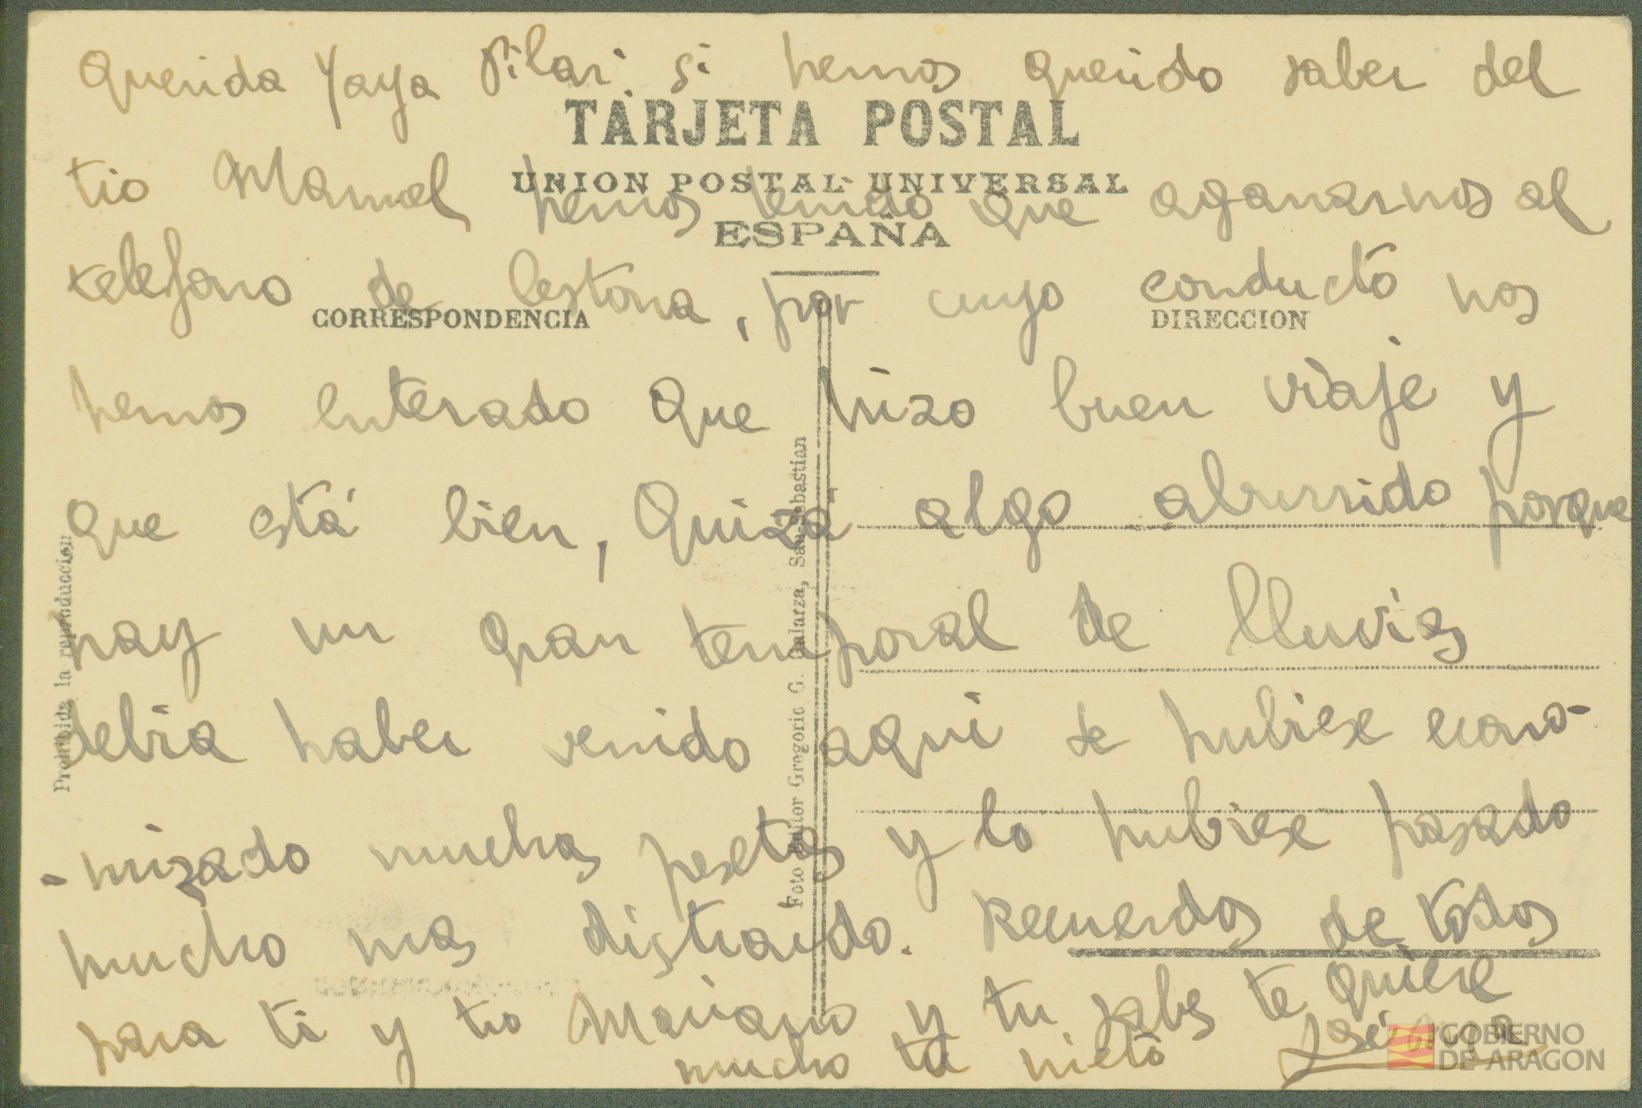 Querida Yaya Pilar si hemos querido saber del
TARJETA POSTAL
tio Manuel, hemos tenido que agarrarnos al
UNION POSTAL UNIVERSAL
ESPAÑA
telefono de Cestona, por cuyo conducto nos
CORRESPONDENCIA
DIRECCION
hemos enterado que hizo buen viaje y
que está bien, Quizá algo aburrido porque
hay un gran temporal de lluvias
debia haber venido aqui se hubiese econo-
-mizado muchas pesetas y lo hubiese pasado
mucho mas distraido. Recuerdos de todos
para ti y tio Mariano y tu sabes te quiere
mucho tu nieto
Prohibida la reproduccion
Foto Editor Gregorio G. Galarza, San Sebastian
GOBIERNO
DE ARAGON